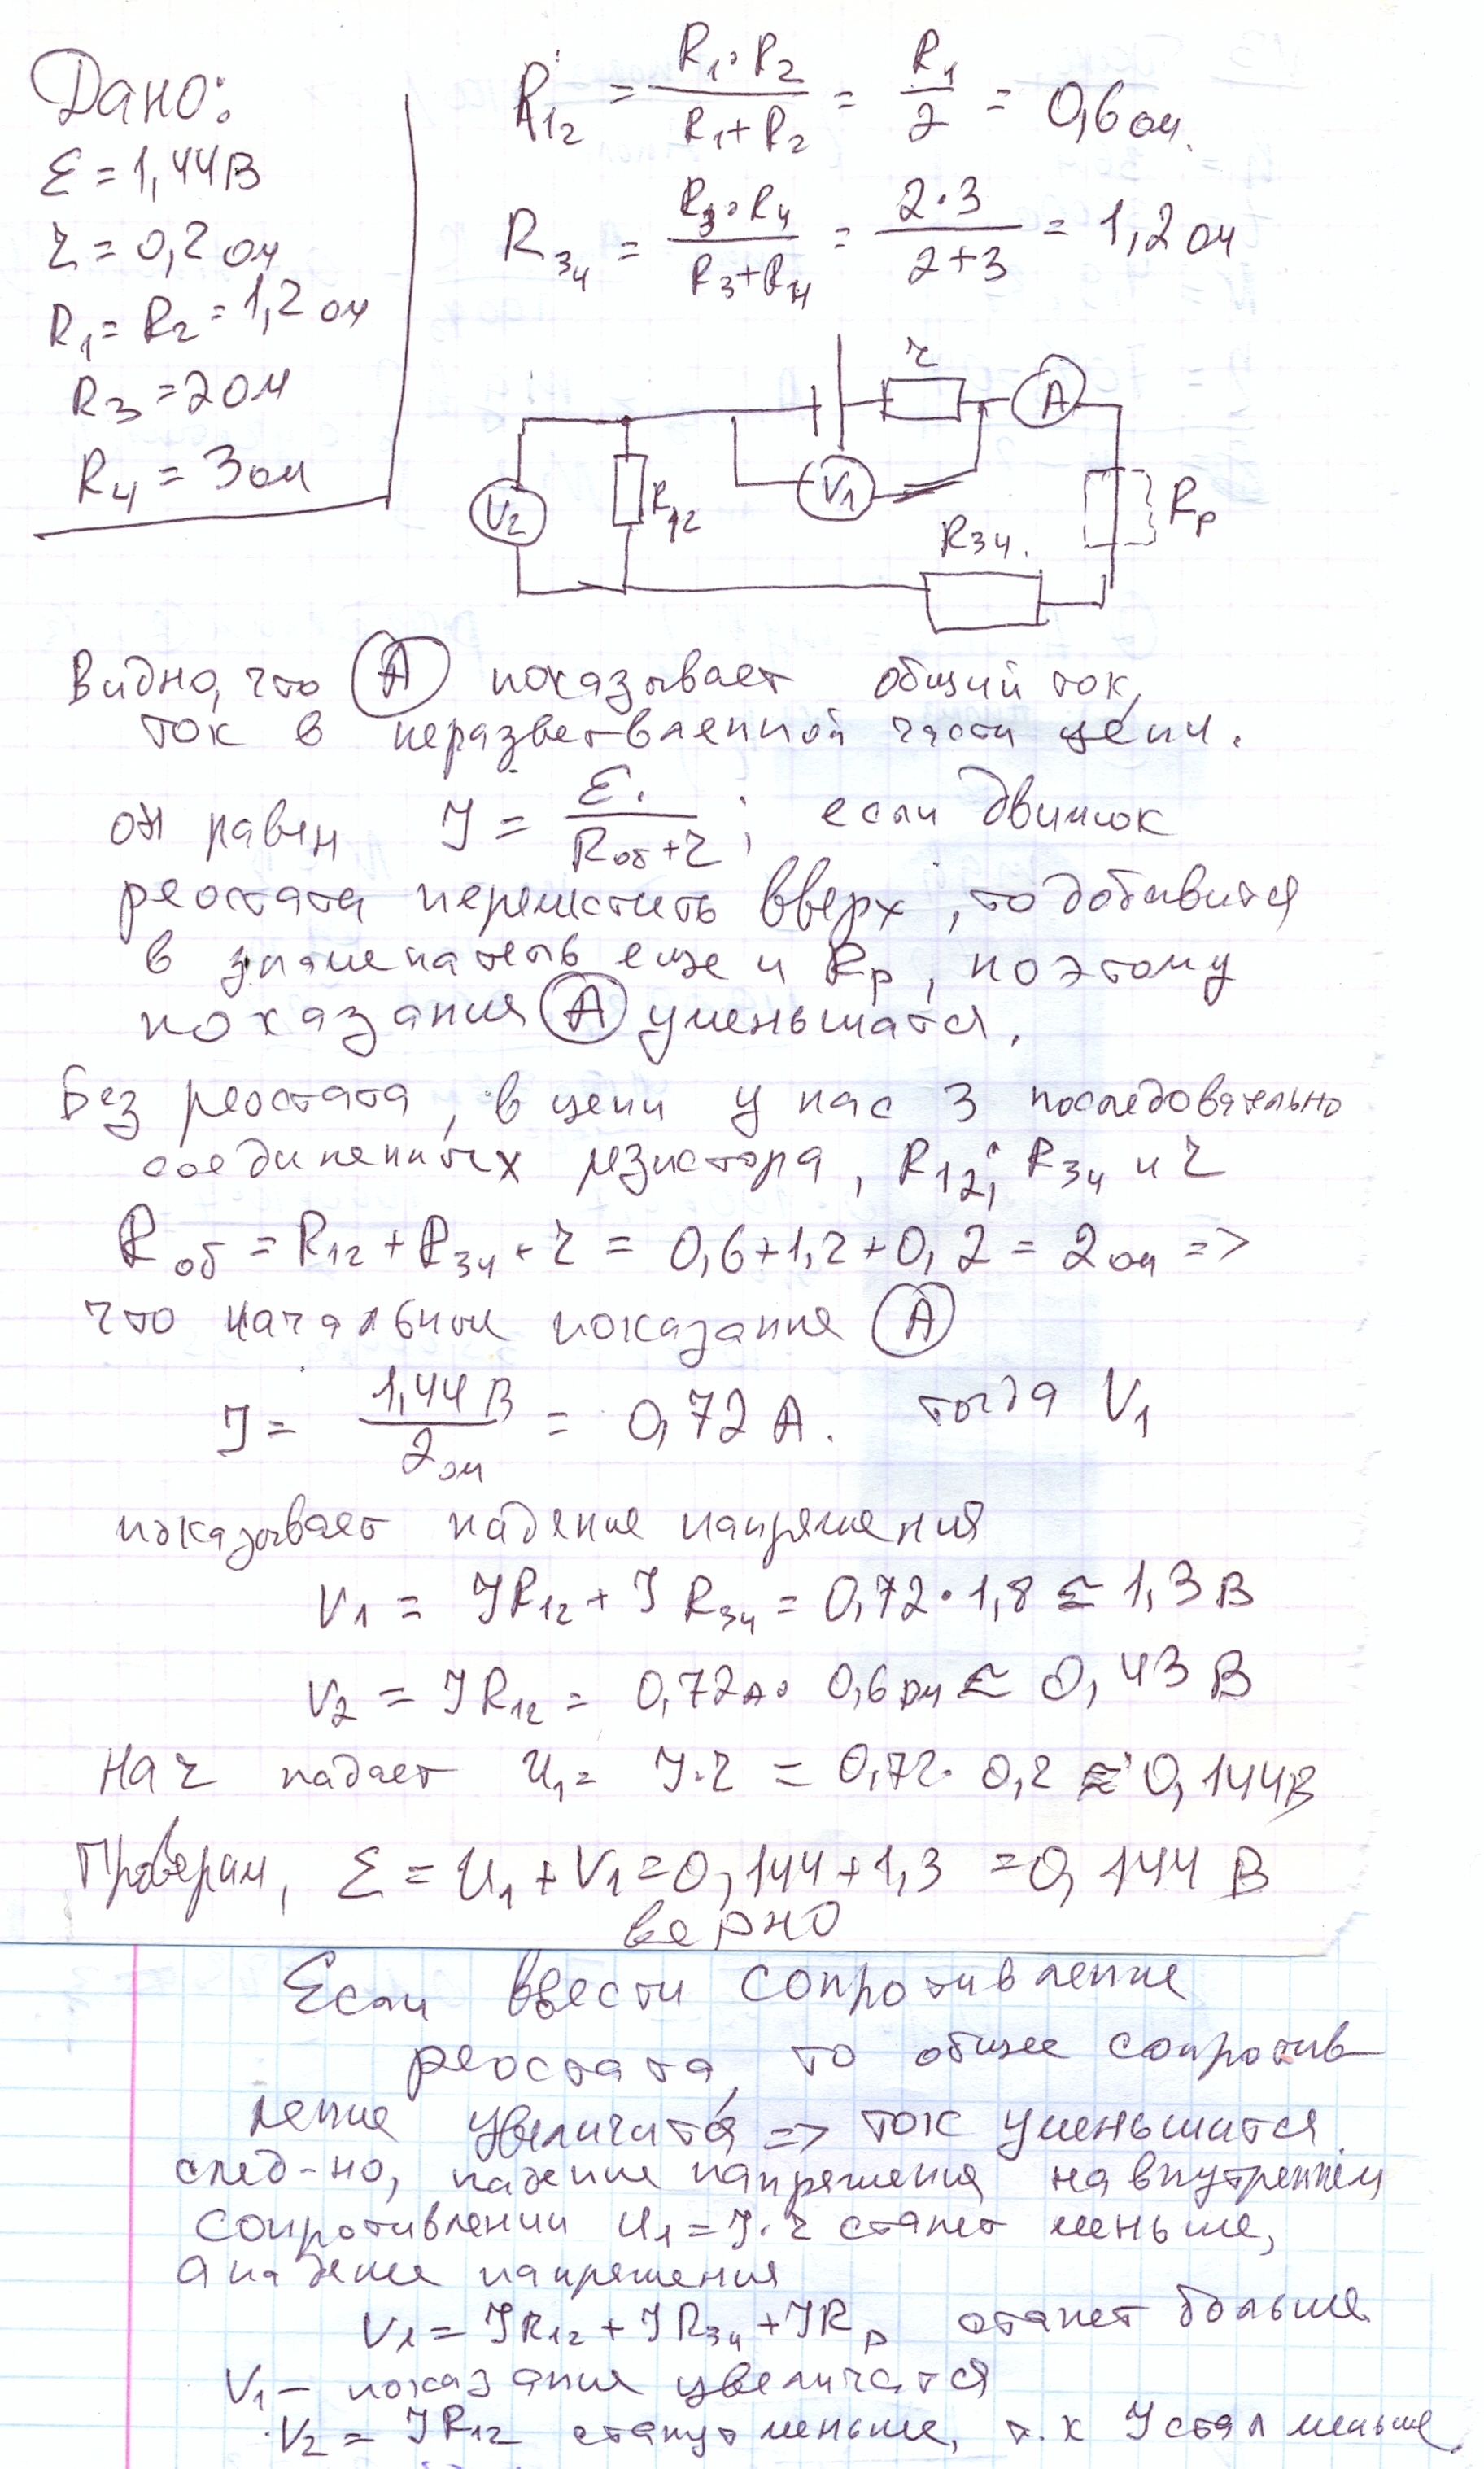 Дано:
ℰ = 1,44 В
r = 0,2 ом
R₁ = R₂ = 1,2 ом
R₃ = 2 ом
R₄ = 3 ом
R₁₂ = R₁·R₂ / (R₁+R₂) = R₁/2 = 0,6 ом.
R₃₄ = R₃·R₄ / (R₃+R₄) = 2·3 / (2+3) = 1,2 ом
r
A
V₁
V₂
R₁₂
Rр
R₃₄.
Видно, что (A) показывает общий ток,
ток в неразветвленной части цепи.
он равен J = ℰ / (Rоб + r) ; если движок
реостата переместить вверх, то добавится
в знаменатель еще и Rр, поэтому
показания (A) уменьшатся.
Без реостата, в цепи у нас 3 последовательно
соединенных резистора, R₁₂; R₃₄ и r
Rоб = R₁₂ + R₃₄ + r = 0,6+1,2+0,2 = 2 ом =>
что начальное показание (A)
J = 1,44 В / 2 ом = 0,72 А. тогда V₁
показывает падение напряжения
V₁ = JR₁₂ + JR₃₄ = 0,72·1,8 ≈ 1,3 В
V₂ = JR₁₂ = 0,72А · 0,6 ом ≈ 0,43 В
На r падает U₁ = J·r = 0,72·0,2 ≈ 0,144 В
Проверим, ℰ = U₁ + V₁ = 0,144 + 1,3 = 0,144 В
верно
Если ввести сопротивление
реостата, то общее сопротив-
ление увеличится => ток уменьшится
след-но, падение напряжения на внутреннем
сопротивлении U₁ = J·r станет меньше,
а падение напряжения
V₁ = JR₁₂ + JR₃₄ + JRр станет больше
V₁ – показания увеличатся
V₂ = JR₁₂ станут меньше, т.к J стал меньше.